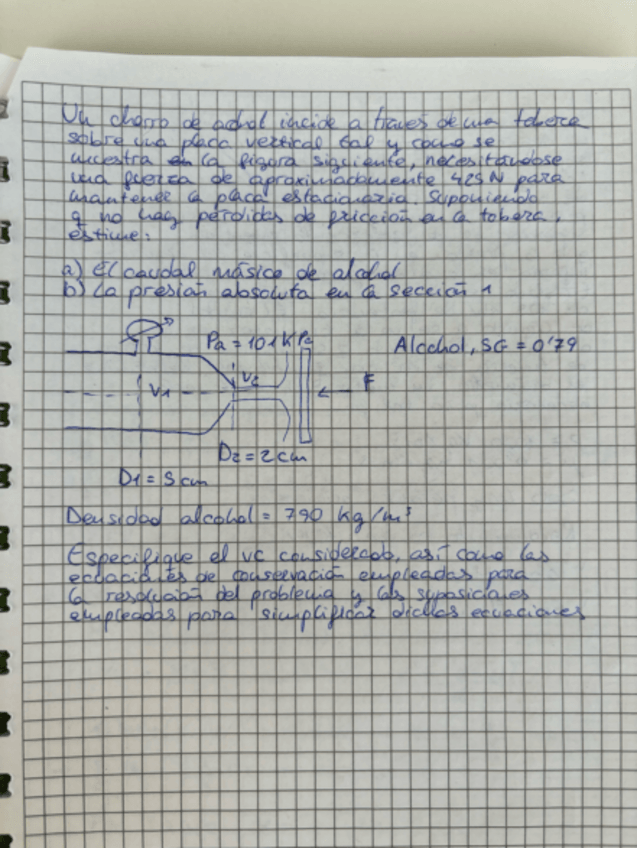 Un chorro de alcohol incide a través de una tobera
sobre una placa vertical tal y como se
muestra en la figura siguiente, necesitándose
una fuerza de aproximadamente 425 N para
mantener la placa estacionaria. Suponiendo
q no hay pérdidas de fricción en la tobera,
estime:
a) El caudal másico de alcohol
b) La presión absoluta en la sección 1
Pa = 101 KPa
Alcohol, SG = 0'79
V1
V2
F
D2 = 2 cm
D1 = 5 cm
Densidad alcohol = 790 kg/m³
Especifique el VC considerado, así como las
ecuaciones de conservación empleadas para
la resolución del problema y las suposiciones
empleadas para simplificar dichas ecuaciones